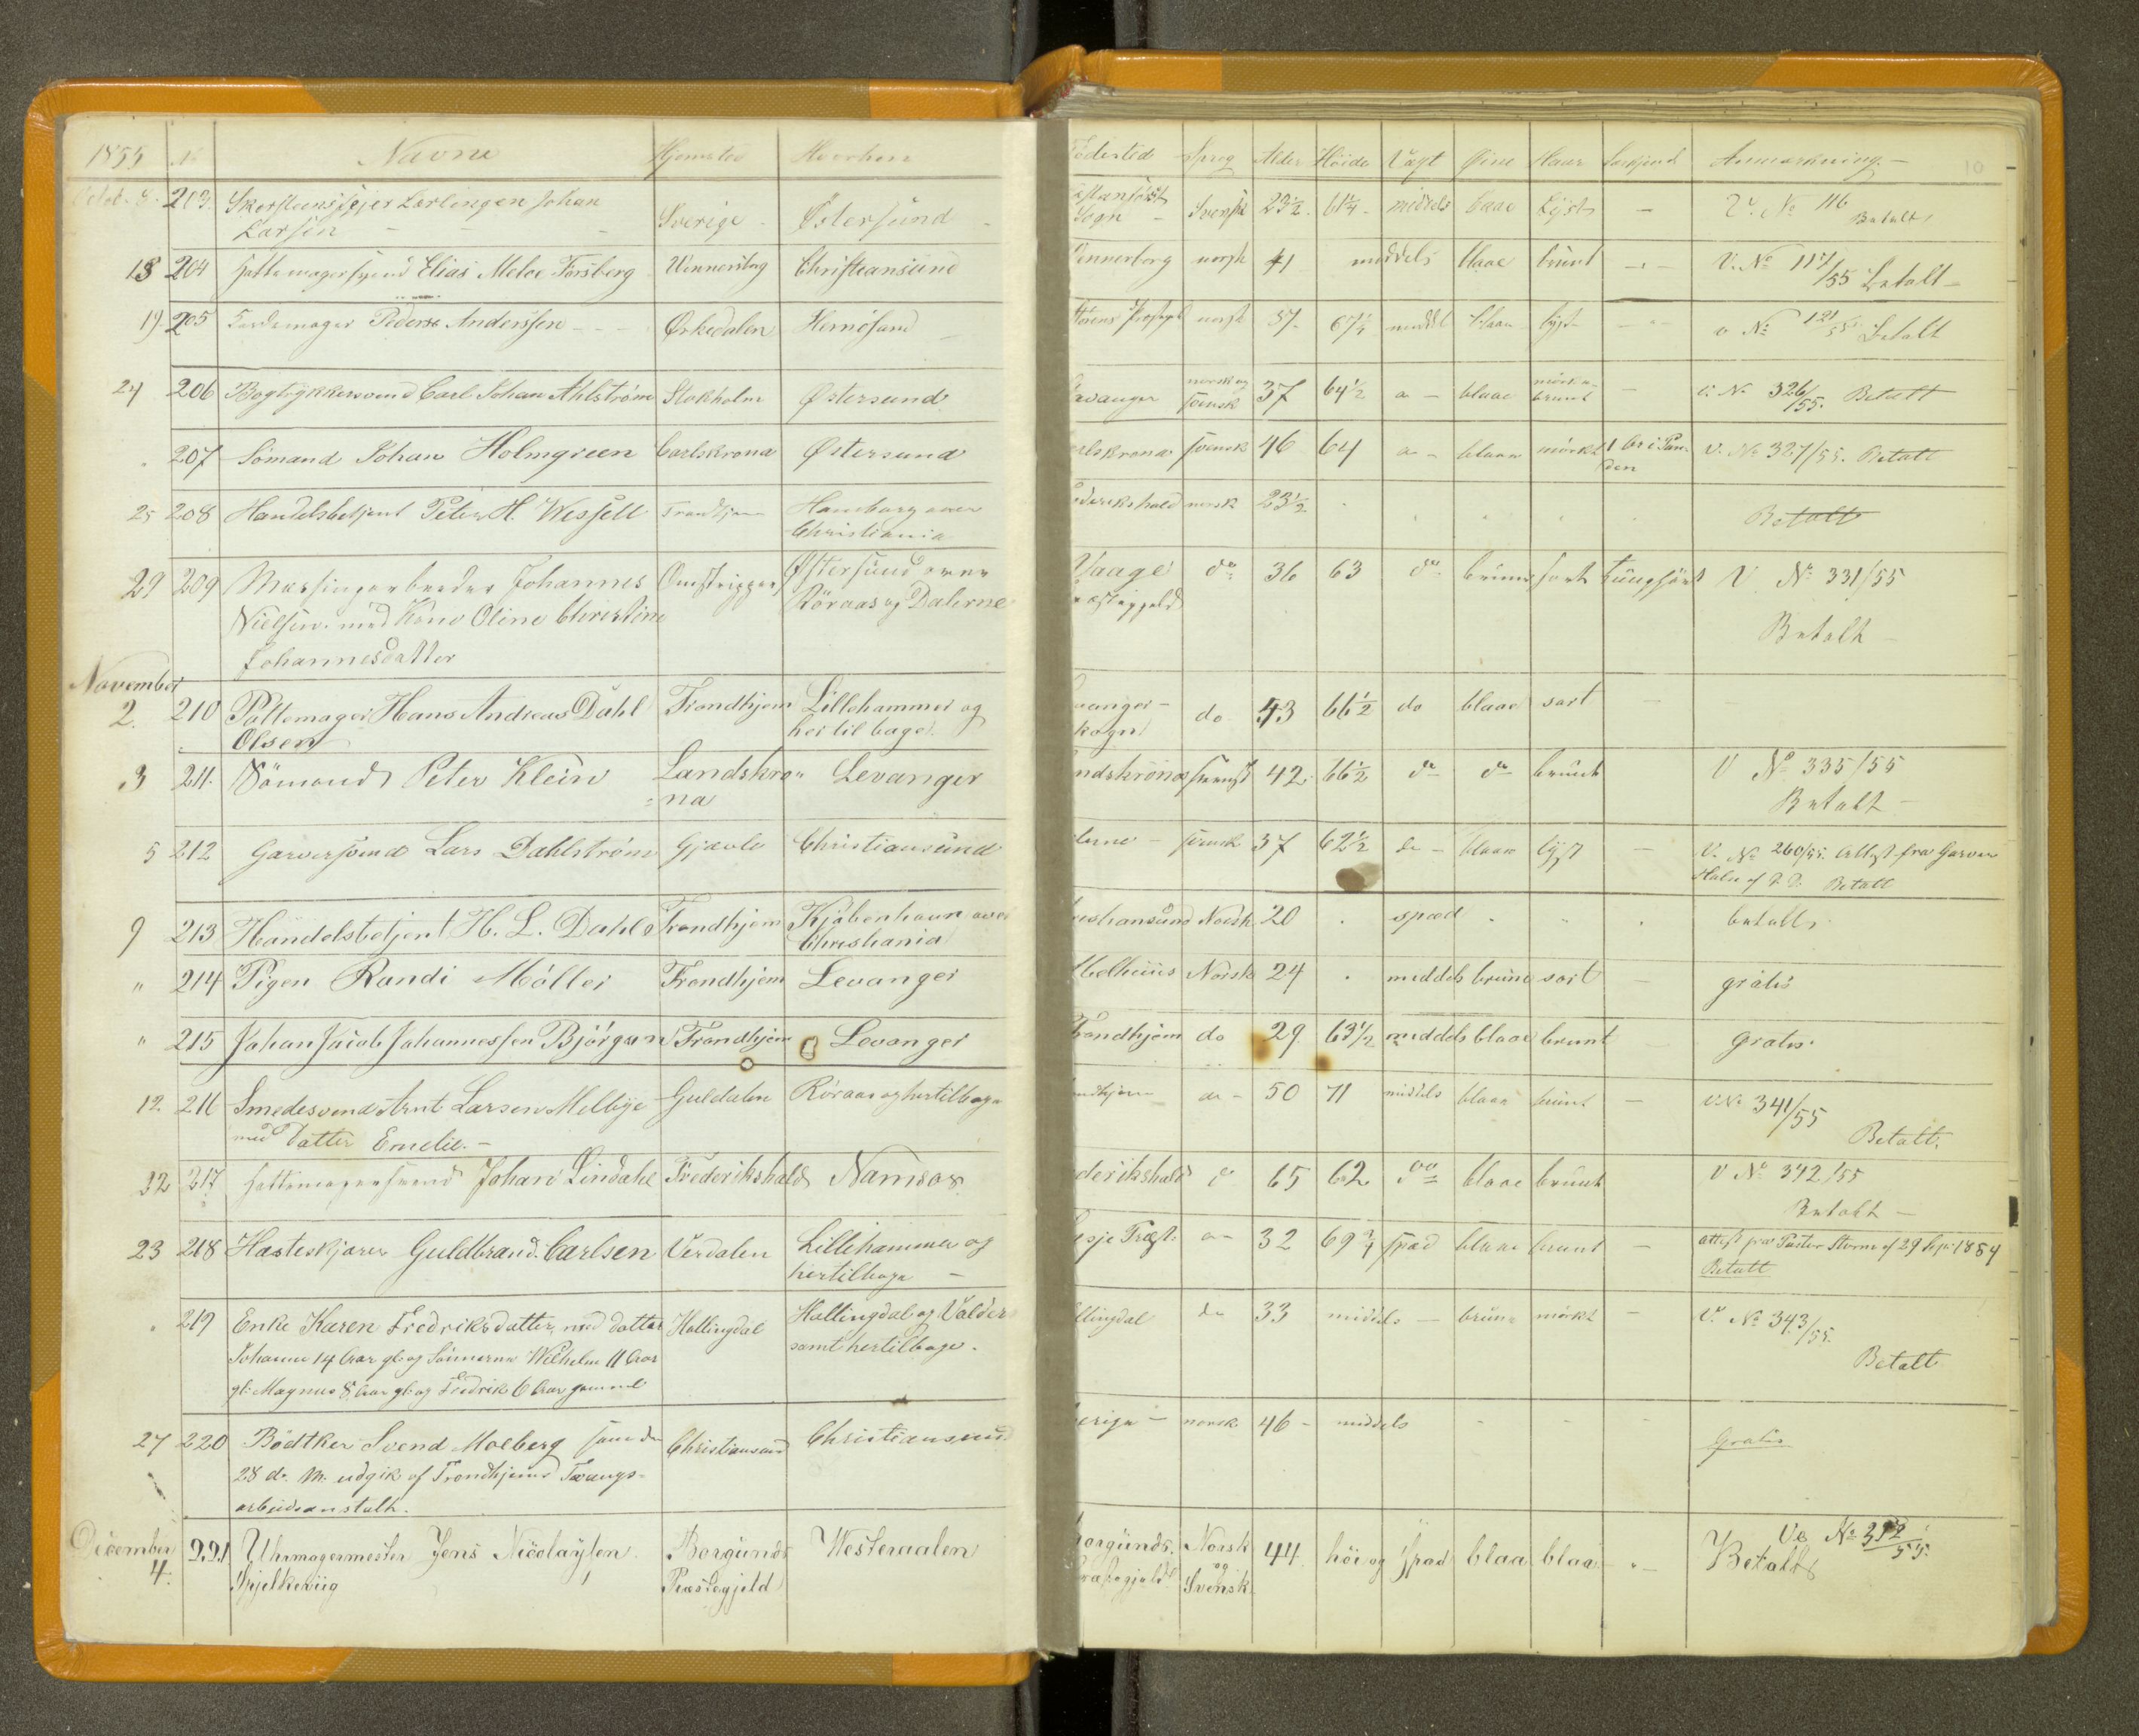 1855 No Navne Hjemsted Hvorhen
Födested Sprog Alder Höide Vægt Öine Haar Særkjend Anmærkning. 10
Octob. 8. 203. Skorsteensfejer Lærlingen Johan
Larsen - - - Sverige - Östersund -
Sogn - Svensk 23½. 61¼. middels blaae Lyst - V. No 116
Betalt
18 204 Hattemagersvend Elias Meloe Forsberg Wennersborg Christiansund
Wennerborg norsk 41 middels blaae brunt - V. No 117/55 Betalt -
19 205 Peders Anderssen - - - Örkedalen Hernösand
norsk 37. 67¼ middel blaae lyst - v No 121/55 Betalt
24 206 Bogtrykkersvend Carl Johan Ahlström Stokholm Östersund
Levanger norsk og svensk 37 64½ do - blaae mörkebrunt - V. No 326/55. Betalt
207 Sömand Johan Holmgreen Carlskrona Östersund
Carlskrona svensk 46 64 do - blaae mörkt 1 Ar i Panden V. No 327/55. Betalt
25 208 Handelsbetjent Peter H. Wessell Trondhjem Hamborg over
Christiania
Frederikshald norsk 23½ . . . . . Betalt
29 209 Messingarbeider Johannes Omstripper Östersund over
Nielsen med Kone Oline Christine Röraas og Dalerne
Johannesdatter
Vaage do 36 63 do brune sort V No 331/55
Præstegjeld Betalt -
November
2. 210 Pottemager Hans Andreas Dahl Trondhjem Lillehammer og
Olsen her til bage.
Levanger - do 43 66½ do blaae sort -
Skogn
3 211. Sömand Peter Klein Landskro- Levanger
=na
Landskrona svensk 42. 66½ do do brunt V No 335/55
Betalt -
5 212 Garversvend Lars Dahlström Gjævle Christiansund
svensk 37 62½ do - blaae lyst - V. No 260/55. Attest fra Garver
Betalt
9 213 Handelsbetjent H. L. Dahl Trondhjem Kjöbenhavn over
Christiania
Christiansund Norsk 20 . spæd . . . betalt.
" 214 Pigen Randi Möller Trondhjem Levanger
Melhuus Norsk 24 . middels brune sort - gratis
" 215 Johan Jacob Johannessen Björgan Trondhjem Levanger
Trondhjem do 29. 63½ middels blaae brunt - gratis.
12. 216 Smedesvend Arnt Larsen Melbye Guldalen Röraas og hertilbage
med Datter Emelie. -
Trondhjem do - 50 71 middels blaae brunt - V. No 341/55
Betalt.
22 217 Hattemagersvend Johan Lindahl Frederikshald Namsos.
Frederikshald do 65 62 do blaae brunt V No 342/55
Betalt -
23 218 Hesteskjærer Guldbrand Carlsen Verdalen Lillehammer og
hertilbage -
Lesje Præst. do - 32 69¾ spæd blaae brunt - attest fra Pastor Storm af 29 Sept 1854
Betalt
219 Enke Karen Fredriksdatter, med datter Hallingdal Hallingdal og Valders
Johanne 14 Aar gl. og Sönnerne Wilhelm 11 Aar samt hertilbage.
gl. Magnus 8 Aar gl. og Fredrik 6 Aar gammel
Hallingdal do 33 middels - brune mörkt - V. No 343/55.
Betalt
27 220 Bödtker Svend Moeberg som den Christiansund Christiansund
28 d. M. udgik af Trondhjems Tvangs-
arbeidsanstalt.
Sverige - norsk 46 - middels - - - Gratis
December
4. 221 Uhrmagermester Jens Nicolaysen. Borgunds Westeraalen
Spjelkeviig Præstegjeld
Borgunds. Norsk 44 höi og spæd blaa blaa - Ve No 352/55.
Præstegjeld og Svensk. Betalt